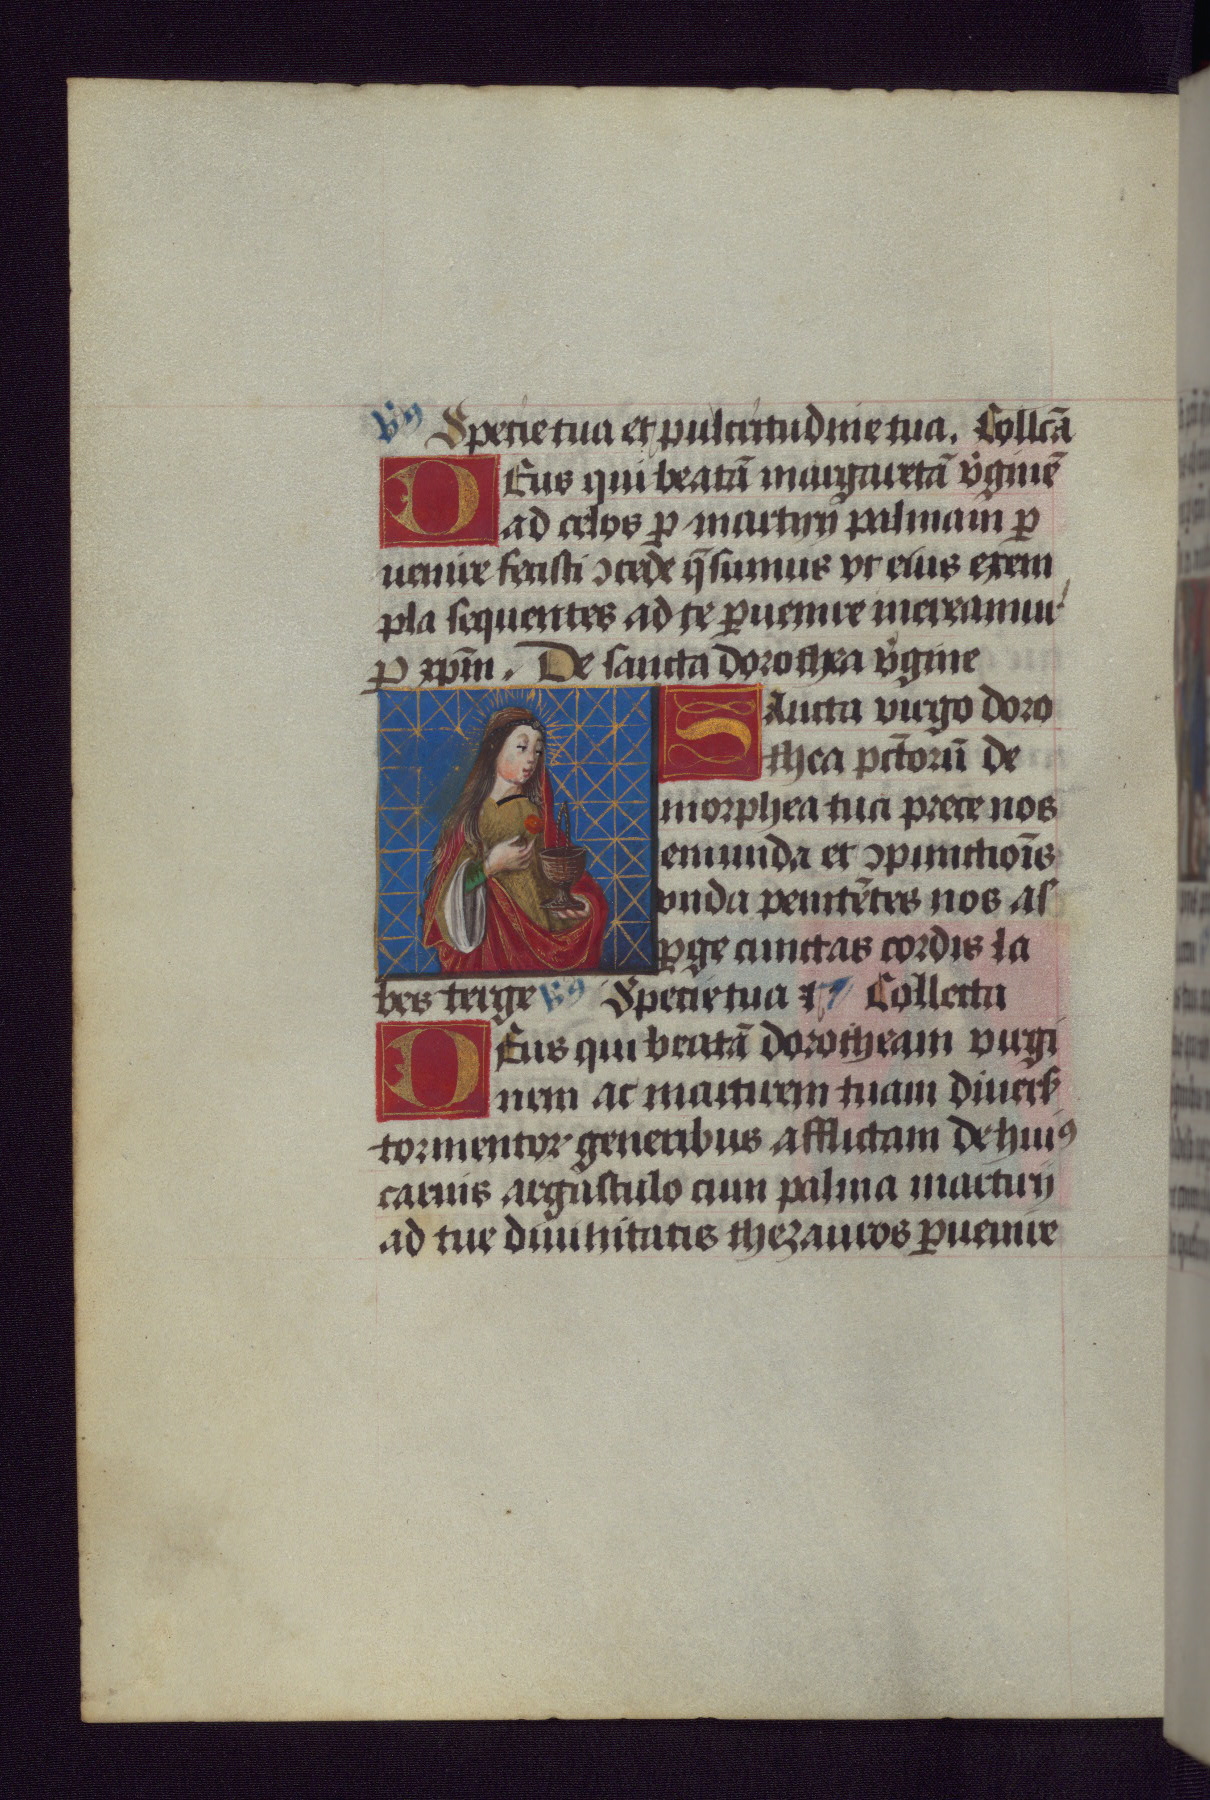 Vꝰ Specie tua et pulcritudine tua. Collcā
DEus qui beatā margaretā v̓ginē
ad celos ꝑ martirij palmam ꝑ
uenire fecisti ɔcede q̄sumus vt eius exem
pla sequentes ad te ꝑuenire mereamur
ꝑ xpm̄. De sancta dorothea v̓gine
SAncta virgo doro
thea pc̄torū de
morphea tua prece nos
emunda et ɔpunctiōis
vnda penitētes nos as
ꝑge cunctas cordis la
bes terge Vꝰ Specie tua ⁊ Collecta
DEus qui beatā dorotheam virgi
nem ac martirem tuam diuers̾
tormentoꝝ generibus afflictam de huiꝰ
carnis argustulo cum palma martirij
ad tue diuinitatis thezauros ꝑuenire